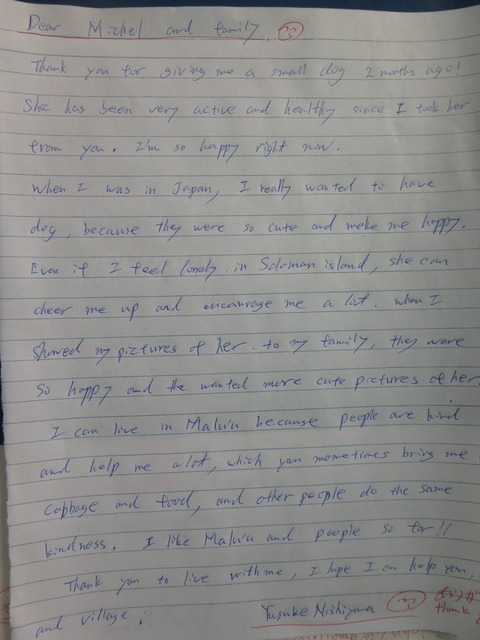 Dear Michel and family.
Thank you for giving me a small dog 2 months ago!
She has been very active and healthy since I took her
from you. I'm so happy right now.
When I was in Japan, I really wanted to have
dog, because they were so cute and make me happy.
Even if I feel lonely in Soloman island, she can
cheer me up and encourage me a lot. When I
showed my pictures of her. to my family, they were
so happy and the wanted more cute pictures of her.
I can live in Malu'u because people are kind
and help me a lot, which you mometimes bring me
cabbage and food, and other people do the same
kindness. I like Malu'u and people so far!!
Thank you to live with me, I hope I can help you,
and village.
Yusuke Nishiyama
ありが
thank